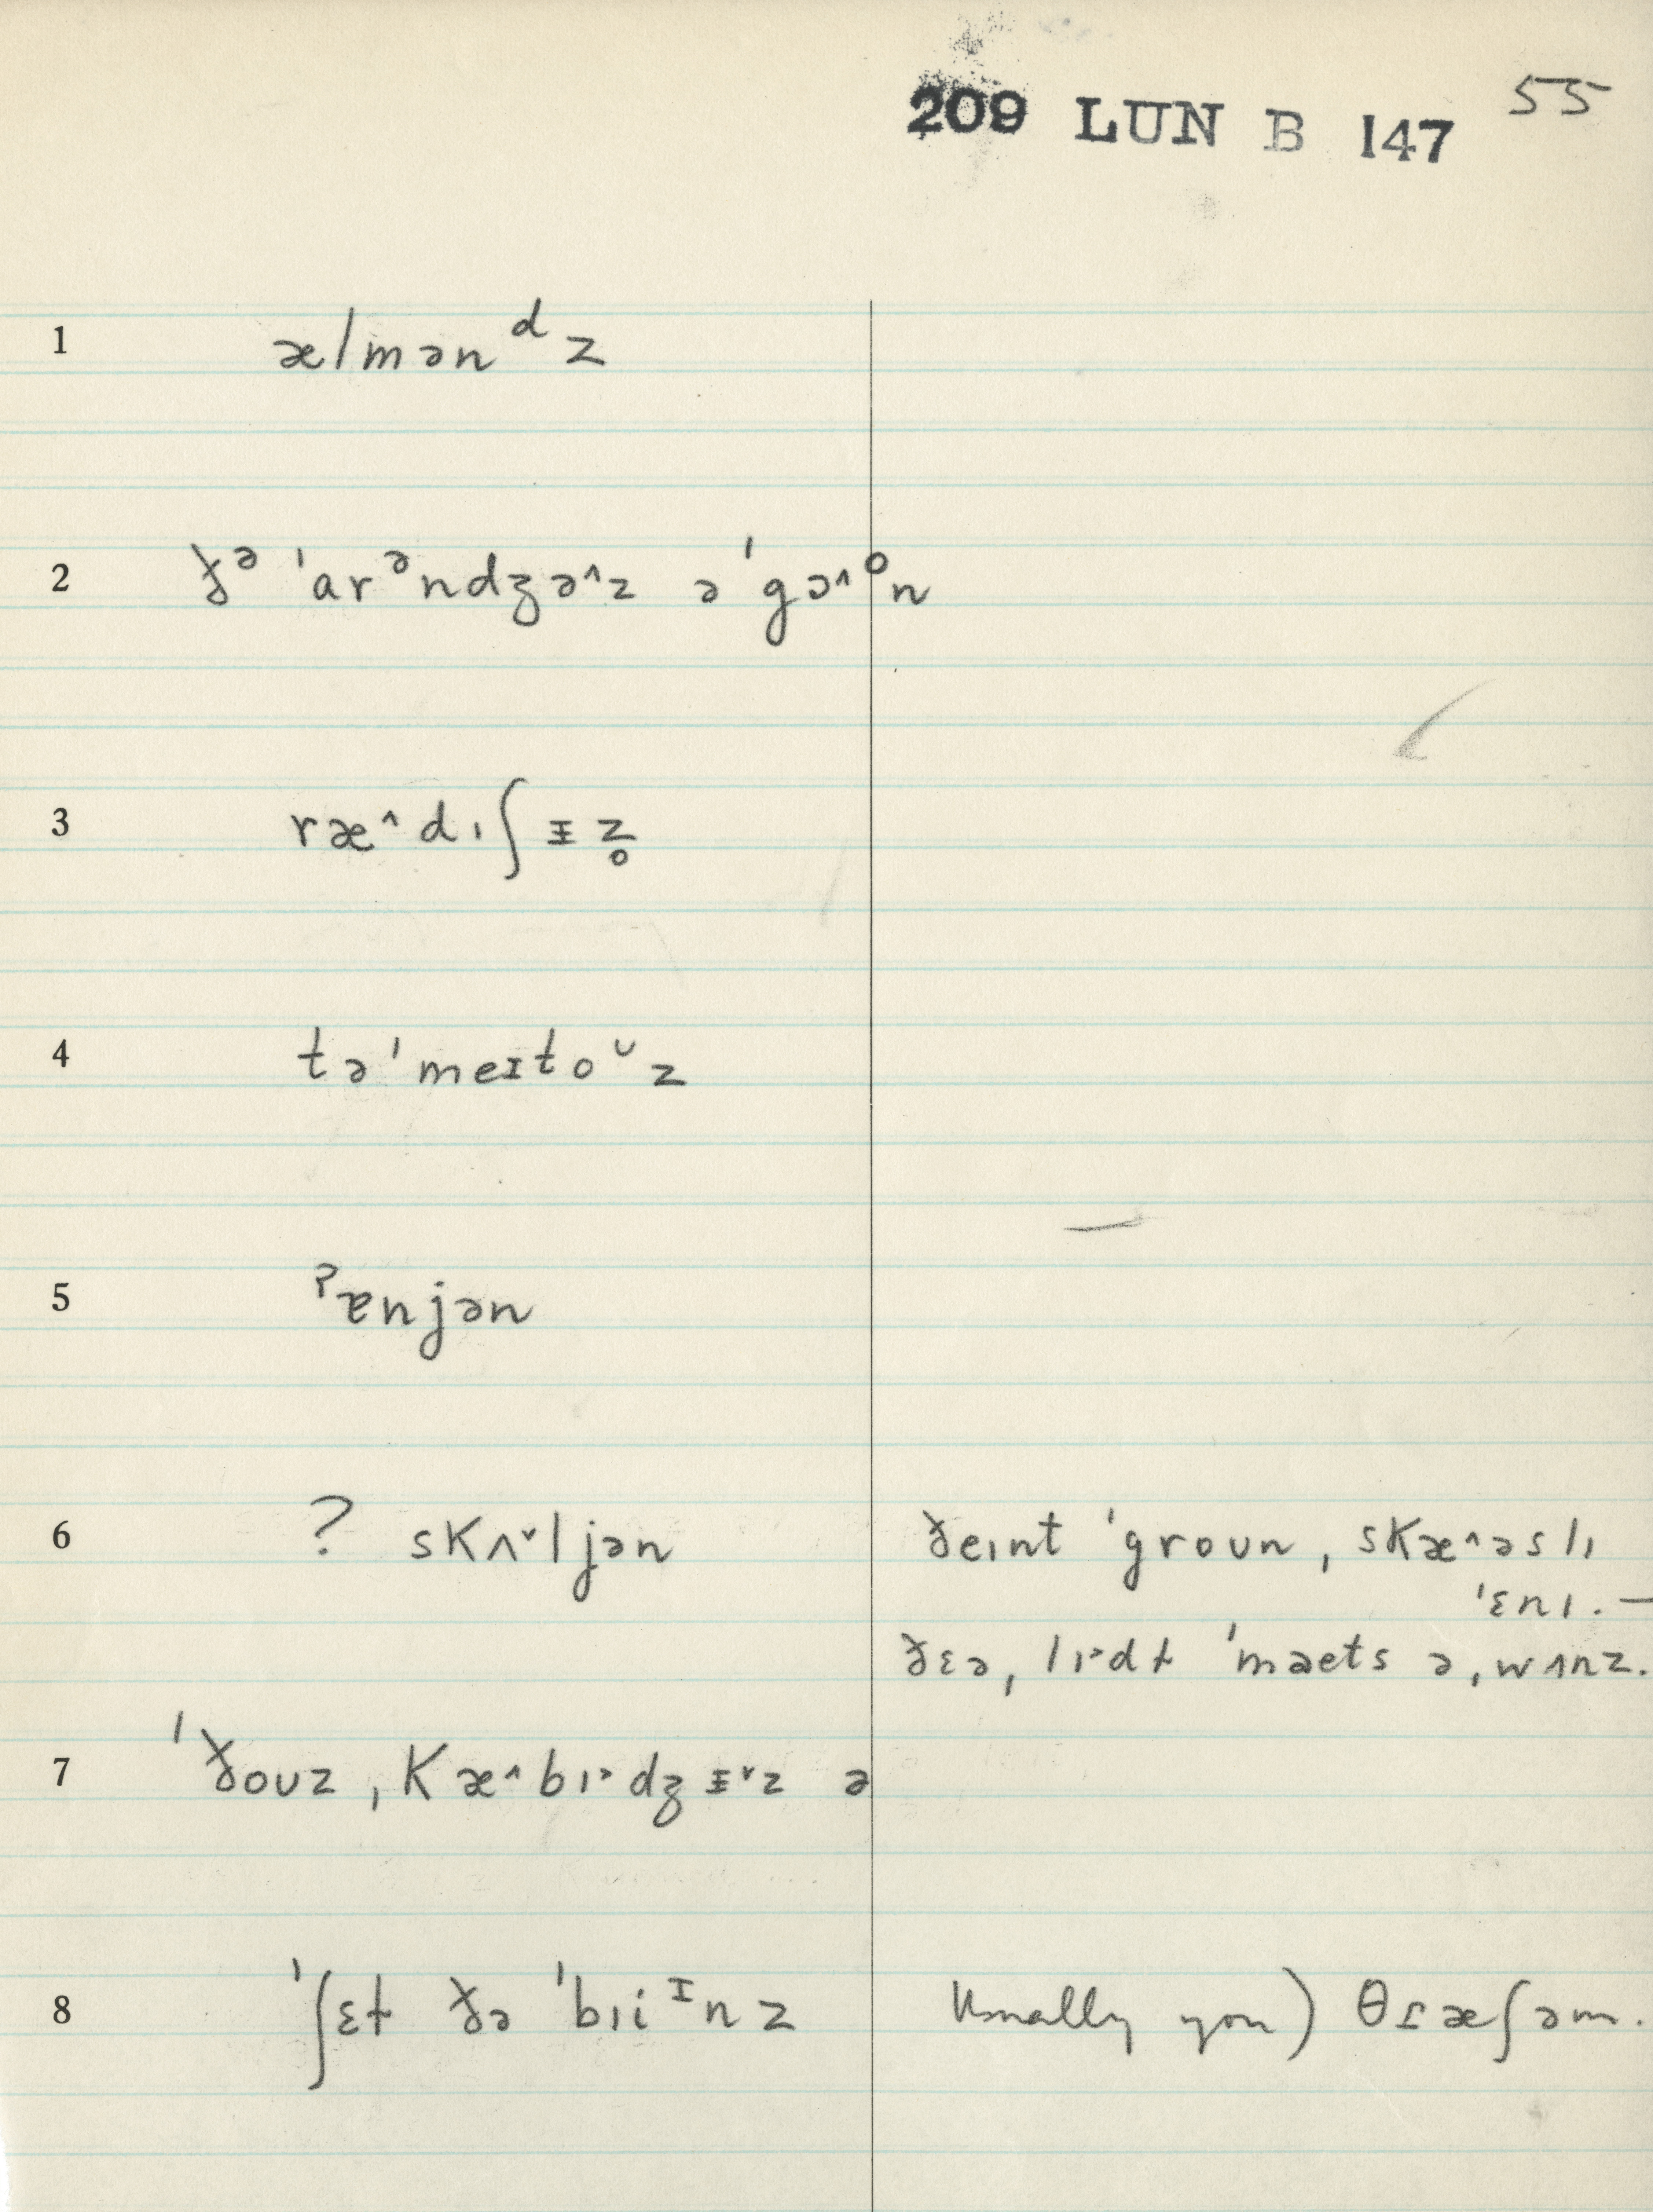 209 LUN B 147 55
1 ælmənᵈz
2 ðᵊ ˈarᵊndʒə^z əˈgɔ^ᵒn
3 ræ^dıʃᵻz̥
4 təˈmeɪtoᶷz
5 ˀɐnjən
6 ? skʌˇljən ðeınt ˈgroun, skæ^əslı
ˈɛnı. –
ðɛə, lı˃dł ˈmaets ə, wʌnz.
7 ˈðouz ˌkæ^bı˃dʒᵻˇz ə
8 ˈʃɛt ðə ˈbıiᶦnz Usually you) θɾæʃəm.